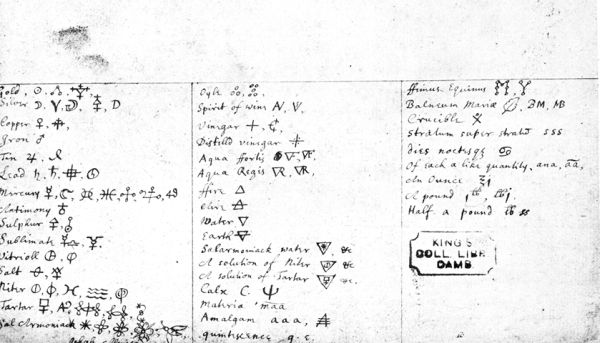 Gold,
Silver
Copper
Iron ♂
Tin ♃
Lead ♄
Mercury ☿
Antimony ♁
Sulphur
Sublimate
Vitrioll
Salt
Niter
Tartar
Sal Armoniack
Oyle
Spirit of wine
Vinegar
Distilld vinegar
Aqua ffortis
Aqua Regis
ffire △
Aire
Water ▽
Earth
Salarmoniack water
A solution of Niter
A solution of Tartar
Calx C. Ψ
Materia m̃aa
Amalgam a a a,
quintessence q. e.
ffimus Equinus
Balneum Mariæ BM, MB
Crucible
Stratum super stratū sss
dies noctesqꝫ
Of each a like quantity, ana, āā,
An Ounce ℥j
A pound 1℔, ℔j
Half a pound ℔ ss
KING'S
COLL. LIBR
CAMB.